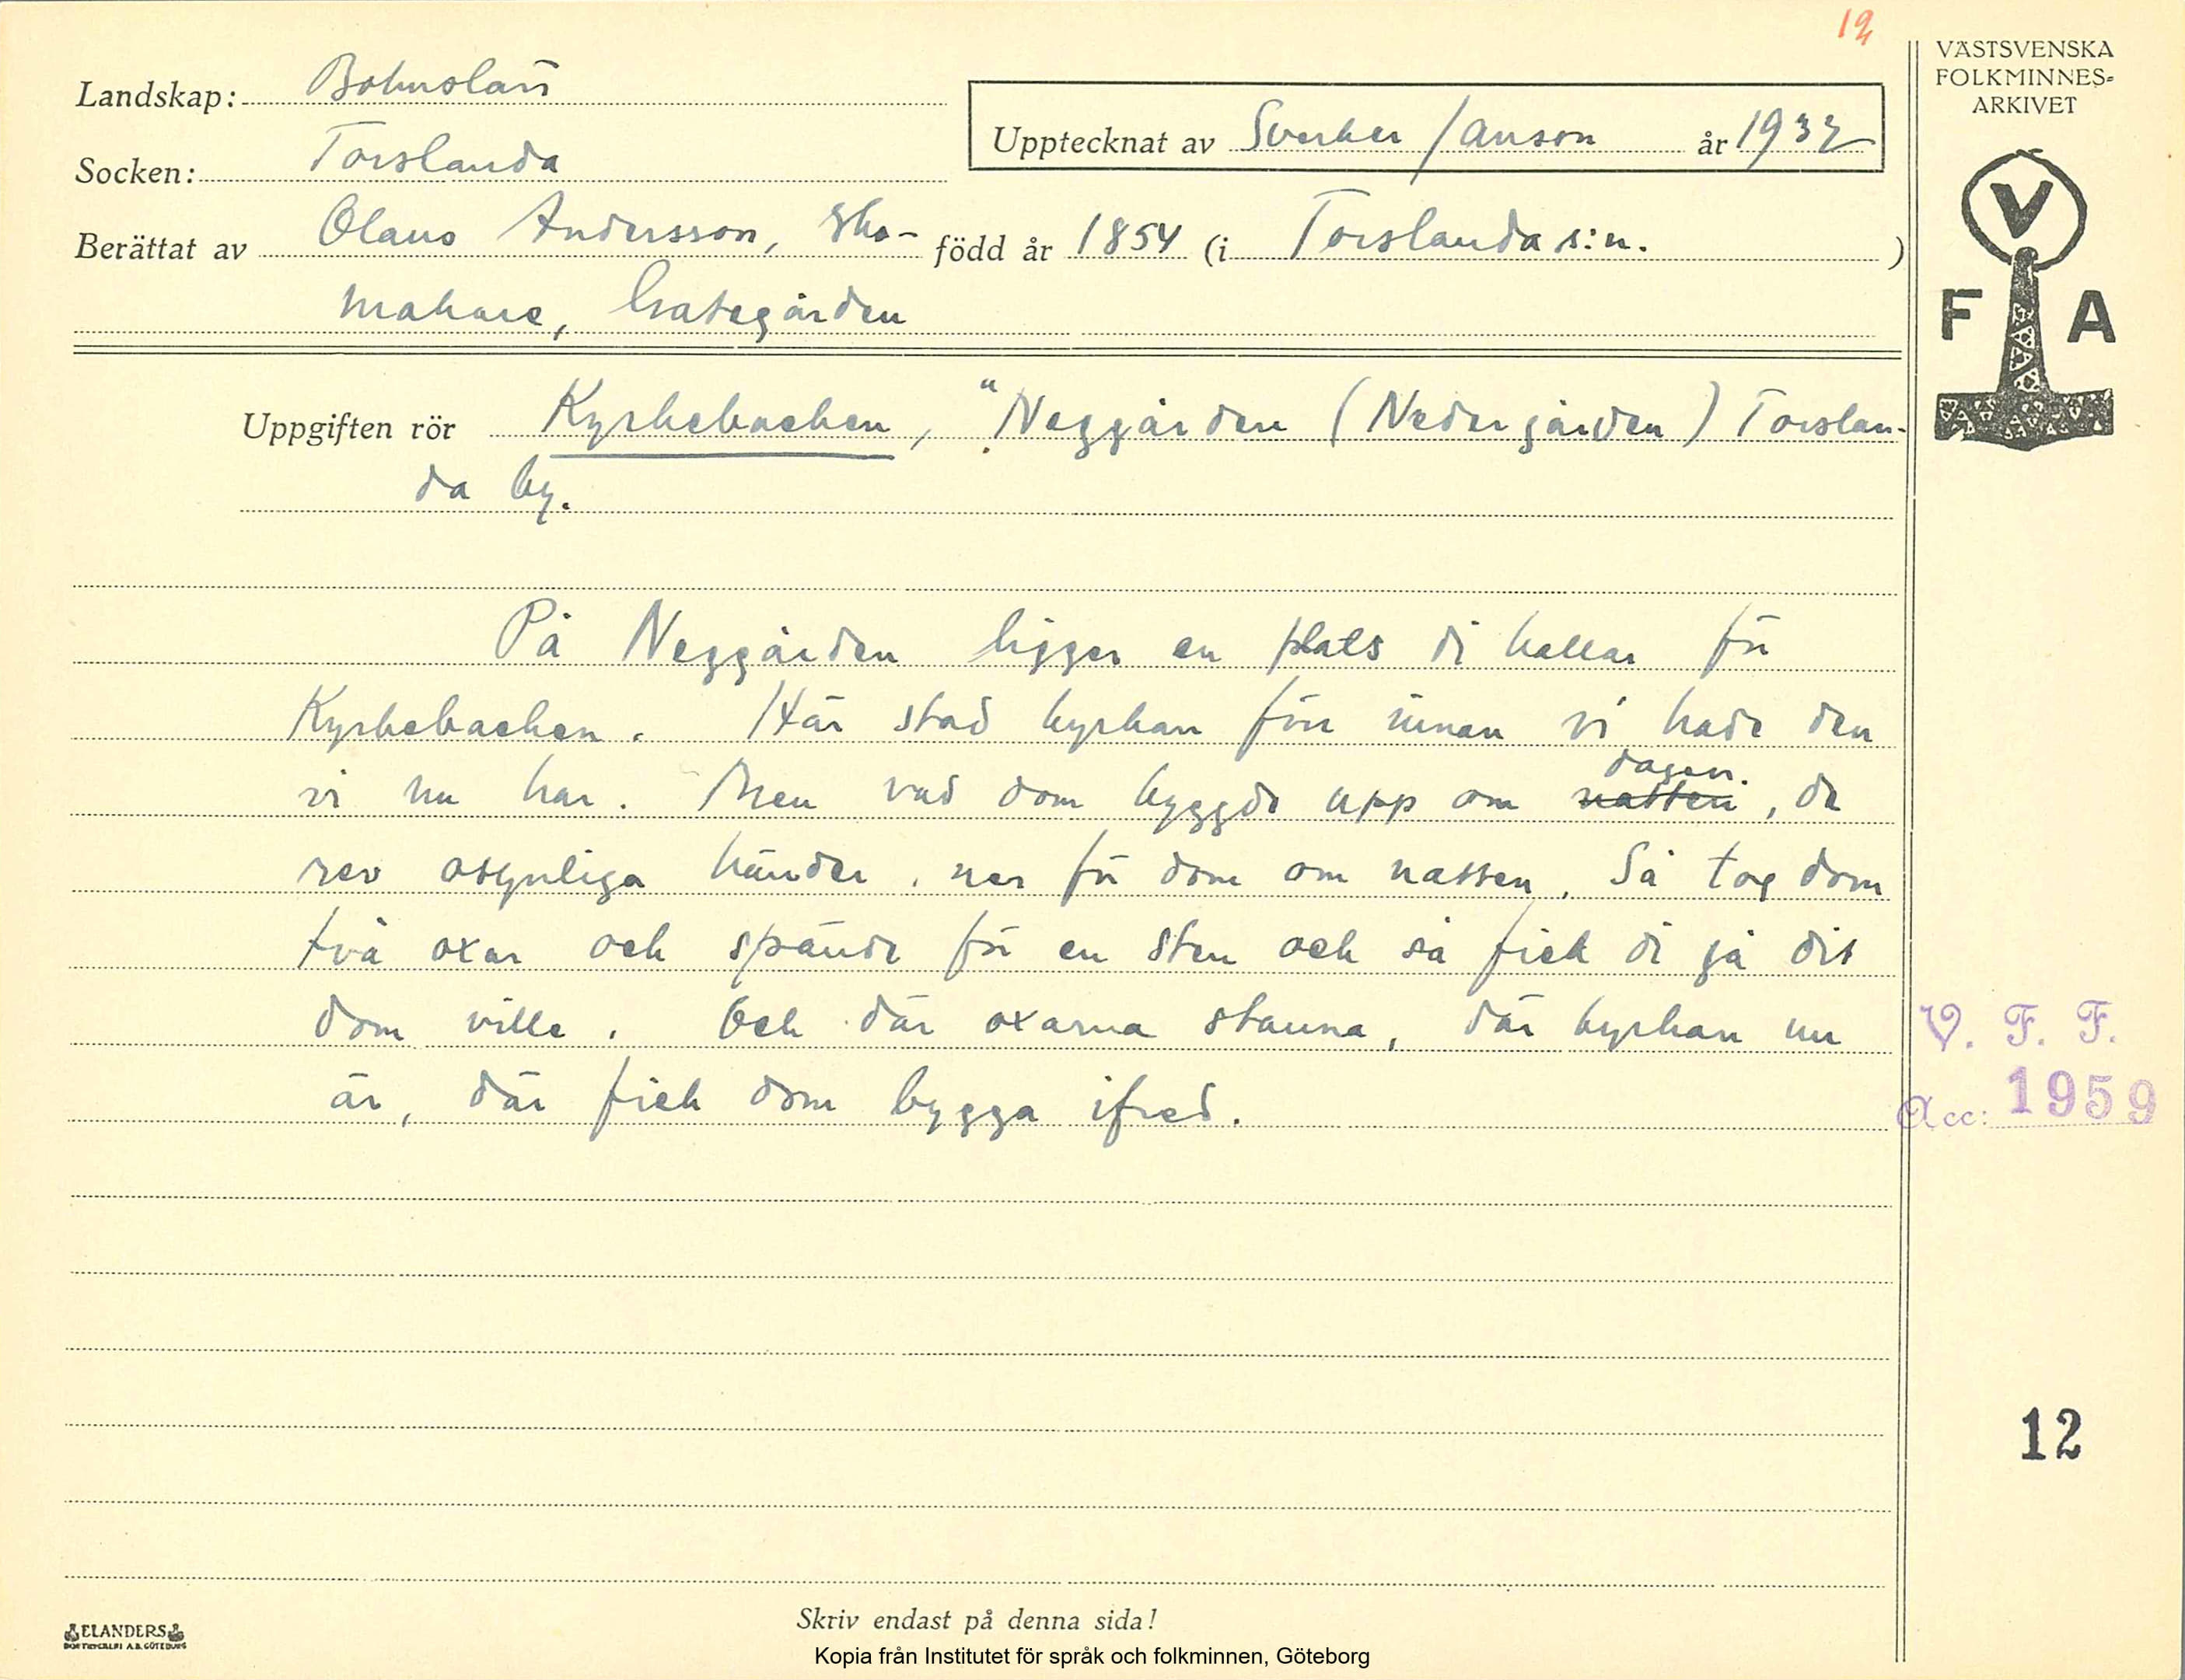 12
VÄSTSVENSKA
FOLKMINNES=
ARKIVET
Landskap: Bohuslän
Upptecknat av Sverker Janson år 1932
Socken: Torslanda
Berättat av Olaus Andersson, sko- född år 1854 (i Torslanda s:n. )
makare, Gategården
V
F A
Uppgiften rör Kyrkebacken, "Neggården (Nedergården) Torslan-
da by.
På Neggården ligger en plats di kallar för
Kyrkebacken. Här stod kyrkan förr innan vi hade den
vi nu har. Men vad dom byggde upp om natten dagen, de
rev osynliga händer ner för dom om natten. Så tog dom
två oxar och spände för en sten och så fick di gå dit
dom ville. Och där oxarna stanna, där kyrkan nu
är, där fick dom bygga ifred.
V. F. F.
Acc: 1959
12
Skriv endast på denna sida!
ELANDERS
BOKTRYCKERI A.B. GÖTEBORG
Kopia från Institutet för språk och folkminnen, Göteborg